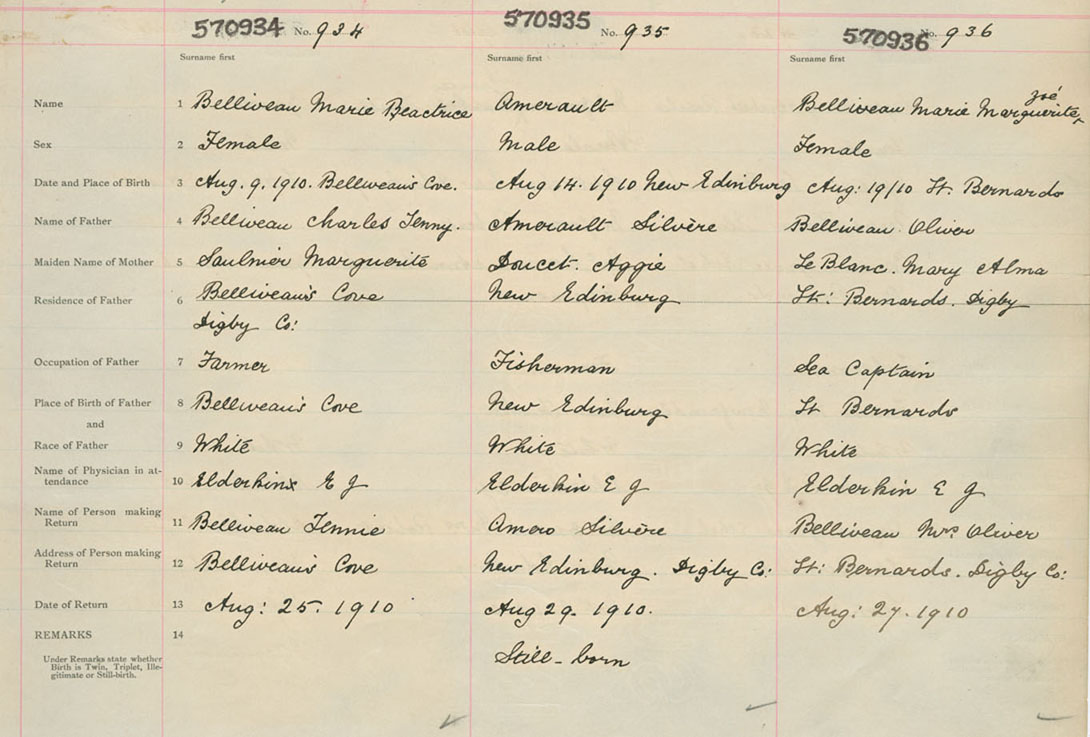 570934 No. 934 570935 No. 935 570936 No. 936
Surname first Surname first Surname first
Zoé
Name 1 Belliveau Marie Beactrice Amerault Belliveau Marie Marguerite
Sex 2 Female Male Female
Date and Place of Birth 3 Aug. 9. 1910. Belliveau's Cove. Aug 14. 1910 New Edinburg Aug: 19/10 St. Bernards
Name of Father 4 Belliveau Charles Jenny. Amerault Silvère Belliveau Oliver
Maiden Name of Mother 5 Saulnier Marguerite Doucet. Aggie Le Blanc. Mary Alma
Residence of Father 6 Belliveau's Cove New Edinburg St: Bernards. Digby
Digby Co:
Occupation of Father 7 Farmer Fisherman Sea Captain
Place of Birth of Father 8 Belliveau's Cove New Edinburg St Bernards
and
Race of Father 9 White White White
Name of Physician in at-
tendance 10 Elderkin E G Elderkin E G Elderkin E G
Name of Person making
Return 11 Belliveau Jennie Amero Silvère Belliveau Mrs Oliver
Address of Person making
Return 12 Belliveau's Cove New Edinburg. Digby Co: St: Bernards. Digby Co:
Date of Return 13 Aug: 25. 1910 Aug 29. 1910. Aug: 27. 1910
REMARKS 14
Under Remarks state whether
Birth is Twin, Triplet, Ille-
gitimate or Still-birth.
Still-born